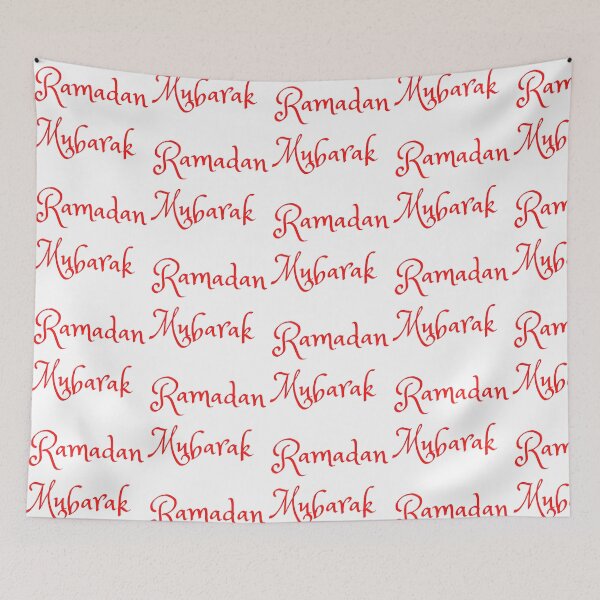 Ramadan Mubarak Ramadan Mubarak Ram
Mubarak Ramadan Mubarak Ramadan Mub
Ramadan Mubarak Ramadan Mubarak Ram
Mubarak Ramadan Mubarak Ramadan Mub
Ramadan Mubarak Ramadan Mubarak Ram
Mubarak Ramadan Mubarak Ramadan Mub
Ramadan Mubarak Ramadan Mubarak Ram
Mubarak Ramadan Mubarak Ramadan Mub